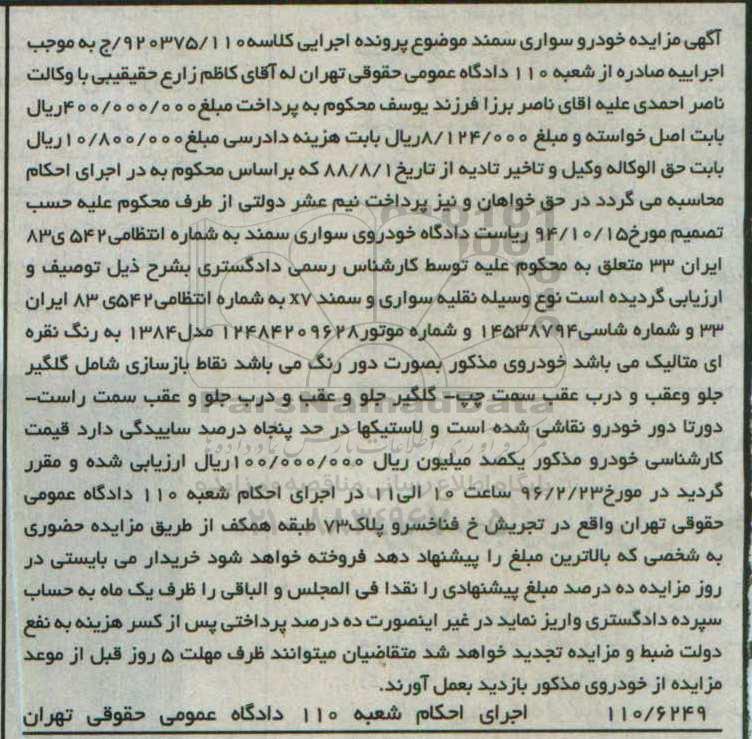 آگهی مزایده خودرو سواری سمند موضوع پرونده اجرایی کلاسه۹۲۰۳۷۵/۱۱۰/ج به موجب
اجراییه صادره از شعبه ۱۱۰ دادگاه عمومی حقوقی تهران له آقای کاظم زارع حقیقیبی با وکالت
ناصر احمدی علیه اقای ناصر برزا فرزند یوسف محکوم به پرداخت مبلغ۴۰۰/۰۰۰/۰۰۰ریال
بابت اصل خواسته و مبلغ ۸/۱۲۴/۰۰۰ریال بابت هزینه دادرسی مبلغ۱۰/۸۰۰/۰۰۰ریال
بابت حق الوکاله وکیل و تاخیر تادیه از تاریخ۸۸/۸/۱ که براساس محکوم به در اجرای احکام
محاسبه می گردد در حق خواهان و نیز پرداخت نیم عشر دولتی از طرف محکوم علیه حسب
تصمیم مورخ۹۴/۱۰/۱۵ ریاست دادگاه خودروی سواری سمند به شماره انتظامی۵۴۲ ی۸۳
ایران ۳۳ متعلق به محکوم علیه توسط کارشناس رسمی دادگستری بشرح ذیل توصیف و
ارزیابی گردیده است نوع وسیله نقلیه سواری و سمند x۷ به شماره انتظامی۵۴۲ی ۸۳ ایران
۳۳ و شماره شاسی۱۴۵۳۸۷۹۴ و شماره موتور۱۲۴۸۴۲۰۹۶۲۸ مدل۱۳۸۴ به رنگ نقره
ای متالیک می باشد خودروی مذکور بصورت دور رنگ می باشد نقاط بازسازی شامل گلگیر
جلو وعقب و درب عقب سمت چپ- گلگیر جلو و عقب و درب جلو و عقب سمت راست-
دورتا دور خودرو نقاشی شده است و لاستیکها در حد پنجاه درصد ساییدگی دارد قیمت
کارشناسی خودرو مذکور یکصد میلیون ریال ۱۰۰/۰۰۰/۰۰۰ریال ارزیابی شده و مقرر
گردید در مورخ۹۶/۲/۲۳ ساعت ۱۰ الی۱۱ در اجرای احکام شعبه ۱۱۰ دادگاه عمومی
حقوقی تهران واقع در تجریش خ فناخسرو پلاک۷۳ طبقه همکف از طریق مزایده حضوری
به شخصی که بالاترین مبلغ را پیشنهاد دهد فروخته خواهد شود خریدار می بایستی در
روز مزایده ده درصد مبلغ پیشنهادی را نقدا فی المجلس و الباقی را ظرف یک ماه به حساب
سپرده دادگستری واریز نماید در غیر اینصورت ده درصد پرداختی پس از کسر هزینه به نفع
دولت ضبط و مزایده تجدید خواهد شد متقاضیان میتوانند ظرف مهلت ۵ روز قبل از موعد
مزایده از خودروی مذکور بازدید بعمل آورند.
۱۱۰/۶۲۴۹ اجرای احکام شعبه ۱۱۰ دادگاه عمومی حقوقی تهران